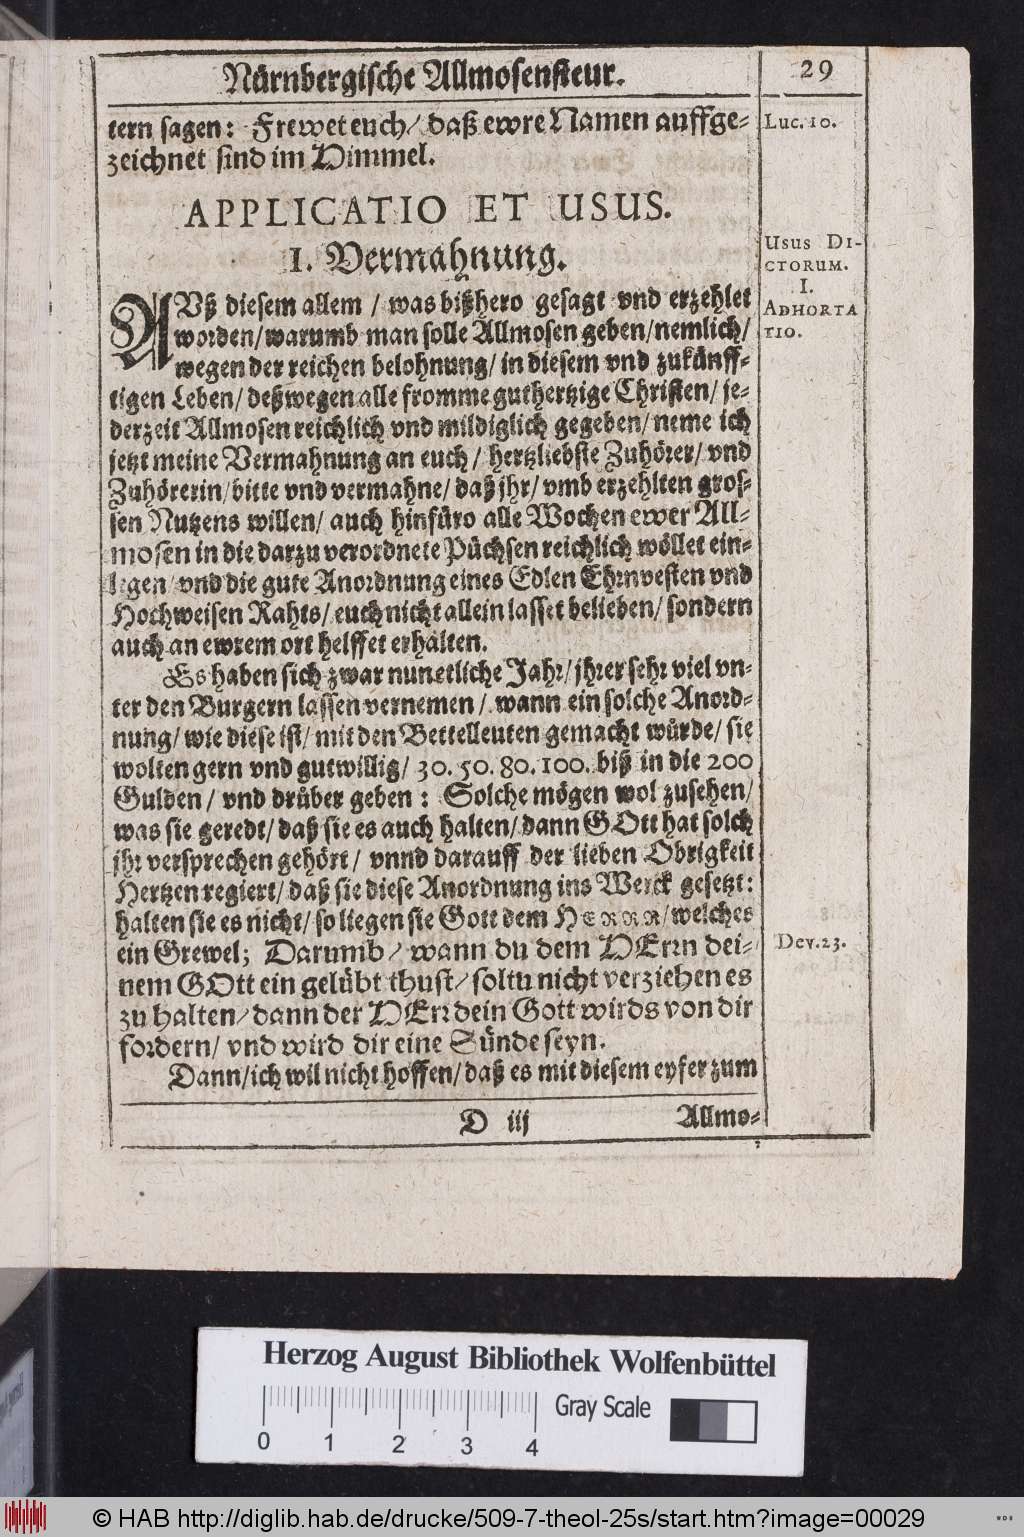 Nürnbergische Allmosensteur.
29
tern sagen: Frewet euch/ daß ewre Namen auffge-
zeichnet sind im Himmel.
Luc. 10.
APPLICATIO ET USUS.
I. Vermahnung.
Usus Di-
ctorum.
I.
Adhorta
tio.
AUß diesem allem / was bißhero gesagt vnd erzehlet
worden/ warumb man solle Allmosen geben/ nemlich/
wegen der reichen belohnung/ in diesem vnd zukünff-
tigen Leben/ deßwegen alle fromme guthertzige Christen/ je-
derzeit Allmosen reichlich vnd mildiglich gegeben/ neme ich
jetzt meine Vermahnung an euch / hertzliebste Zuhörer/ vnd
Zuhörerin/ bitte vnd vermahne/ daß jhr/ vmb erzehlten gros-
sen Nutzens willen/ auch hinfüro alle Wochen ewer All-
mosen in die darzu verordnete Püchsen reichlich wöllet ein-
legen/ vnd die gute Anordnung eines Edlen Ehrnvesten vnd
Hochweisen Rahts/ euch nicht allein lasset belieben/ sondern
auch an ewrem ort helffet erhalten.
Es haben sich zwar nun etliche Jahr/ jhrer sehr viel vn-
ter den Burgern lassen vernemen / wann ein solche Anord-
nung/ wie diese ist/ mit den Bettelleuten gemacht würde/ sie
wolten gern vnd gutwillig/ 30. 50. 80. 100. biß in die 200
Gulden / vnd drüber geben: Solche mögen wol zusehen/
was sie geredt/ daß sie es auch halten/ dann GOtt hat solch
jhr versprechen gehört / vnnd darauff der lieben Obrigkeit
Hertzen regiert/ daß sie diese Anordnung ins Werck gesetzt:
halten sie es nicht/ so liegen sie Gott dem HERRR/ welches
ein Grewel; Darumb/ wann du dem HErrn dei-
nem GOtt ein gelübt thust/ soltu nicht verziehen es
zu halten/ dann der HErr dein Gott wirds von dir
fordern/ vnd wird dir eine Sünde seyn.
Dev. 23.
Dann/ ich wil nicht hoffen/ daß es mit diesem eyfer zum
D iij
Allmo-
Herzog August Bibliothek Wolfenbüttel
0 1 2 3 4
Gray Scale
© HAB http://diglib.hab.de/drucke/509-7-theol-25s/start.htm?image=00029